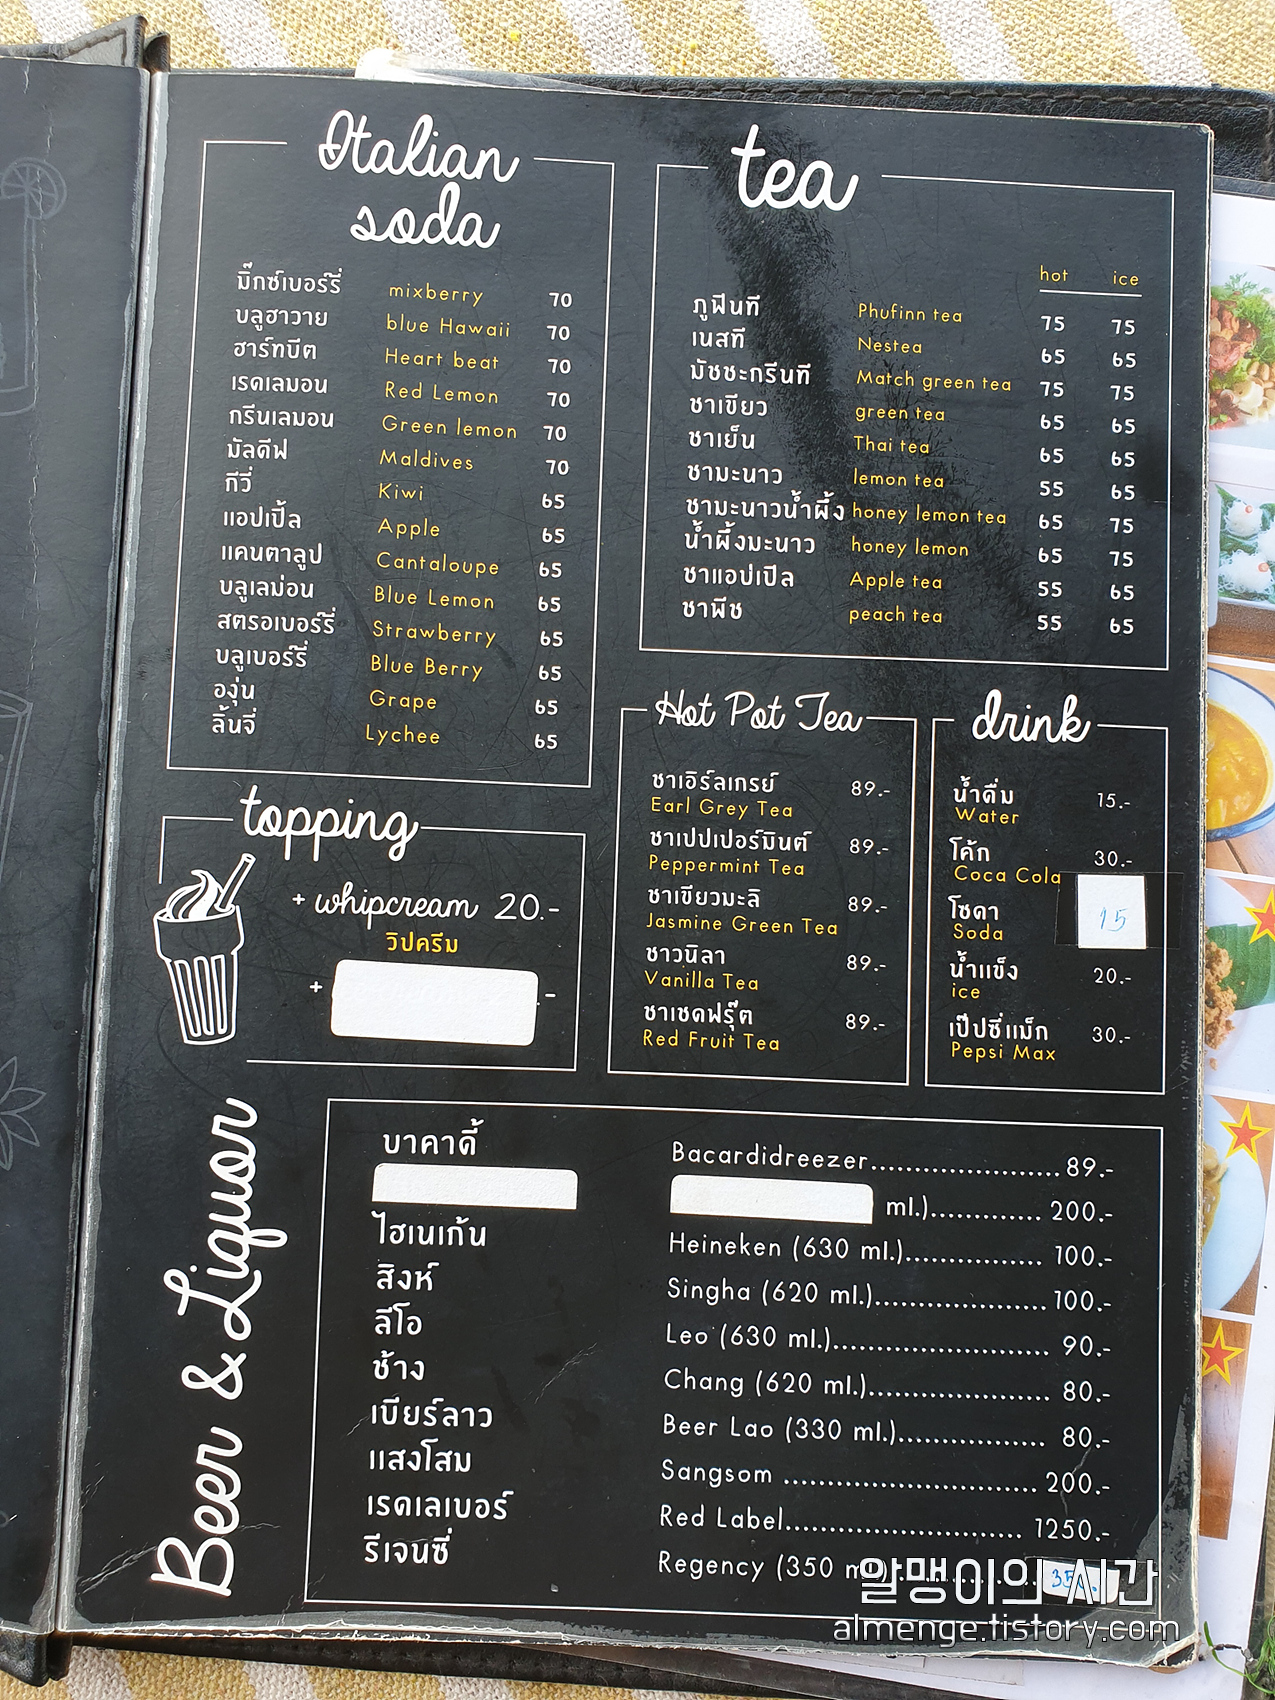 Italian
soda
มิ๊กซ์เบอร์รี่ mixberry 70
บลูฮาวาย blue Hawaii 70
ฮาร์ทบีต Heart beat 70
เรดเลมอน Red Lemon 70
กรีนเลมอน Green lemon 70
มัลดีฟ Maldives 70
กีวี่ Kiwi 65
แอปเปิ้ล Apple 65
แคนตาลูป Cantaloupe 65
บลูเลม่อน Blue Lemon 65
สตรอเบอร์รี่ Strawberry 65
บลูเบอร์รี่ Blue Berry 65
องุ่น Grape 65
ลิ้นจี่ Lychee 65
tea
hot ice
ภูฟินที Phufinn tea 75 75
เนสที Nestea 65 65
มัชชะกรีนที Match green tea 75 75
ชาเขียว green tea 65 65
ชาเย็น Thai tea 65 65
ชามะนาว lemon tea 55 65
ชามะนาวน้ำผึ้ง honey lemon tea 65 75
น้ำผึ้งมะนาว honey lemon 65 75
ชาแอปเปิล Apple tea 55 65
ชาพีช peach tea 55 65
topping
+ whipcream 20.-
วิปครีม
+ .-
Hot Pot Tea
ชาเอิร์ลเกรย์ 89.-
Earl Grey Tea
ชาเปปเปอร์มินต์ 89.-
Peppermint Tea
ชาเขียวมะลิ 89.-
Jasmine Green Tea
ชาวนิลา 89.-
Vanilla Tea
ชาเชดฟรุ๊ต 89.-
Red Fruit Tea
drink
น้ำดื่ม 15.-
Water
โค้ก 30.-
Coca Cola
โซดา 15
Soda
น้ำแข็ง 20.-
ice
เป๊ปซี่แม็ก 30.-
Pepsi Max
Beer & Liquor
บาคาดี้ Bacardidreezer.....................89.-
ml.)............. 200.-
ไฮเนเก้น Heineken (630 ml.)................ 100.-
สิงห์ Singha (620 ml.)....................100.-
ลีโอ Leo (630 ml.)......................... 90.-
ช้าง Chang (620 ml.)..................... 80.-
เบียร์ลาว Beer Lao (330 ml.)................. 80.-
แสงโสม Sangsom ............................. 200.-
เรดเลเบอร์ Red Label........................... 1250.-
รีเจนซี่ Regency (350 m 350.-
알맹이의 시간
almenge.tistory.com